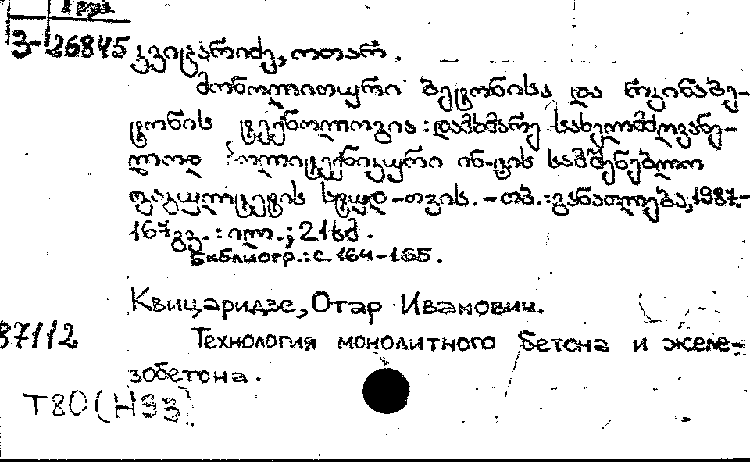 3-26845 კვიცარიძე, ოთარ.
მონოლითური ბეტონისა და რკინაბე-
ტონის ტექნოლოგია: დამხმარე სახელმძღვანე-
ლოდ პოლიტექნიკური ინ-ტის სამშენებლო
ფაკულტეტის სტუდ-თვის. - თბ.: განათლება, 1987.-
167გვ.: ილ.; 21სმ.
Библиогр.: с. 164-165.
Квицаридзе, Отар Иванович.
87112 Технология монолитного бетона и желе-
зобетона.
Т80(Н33)